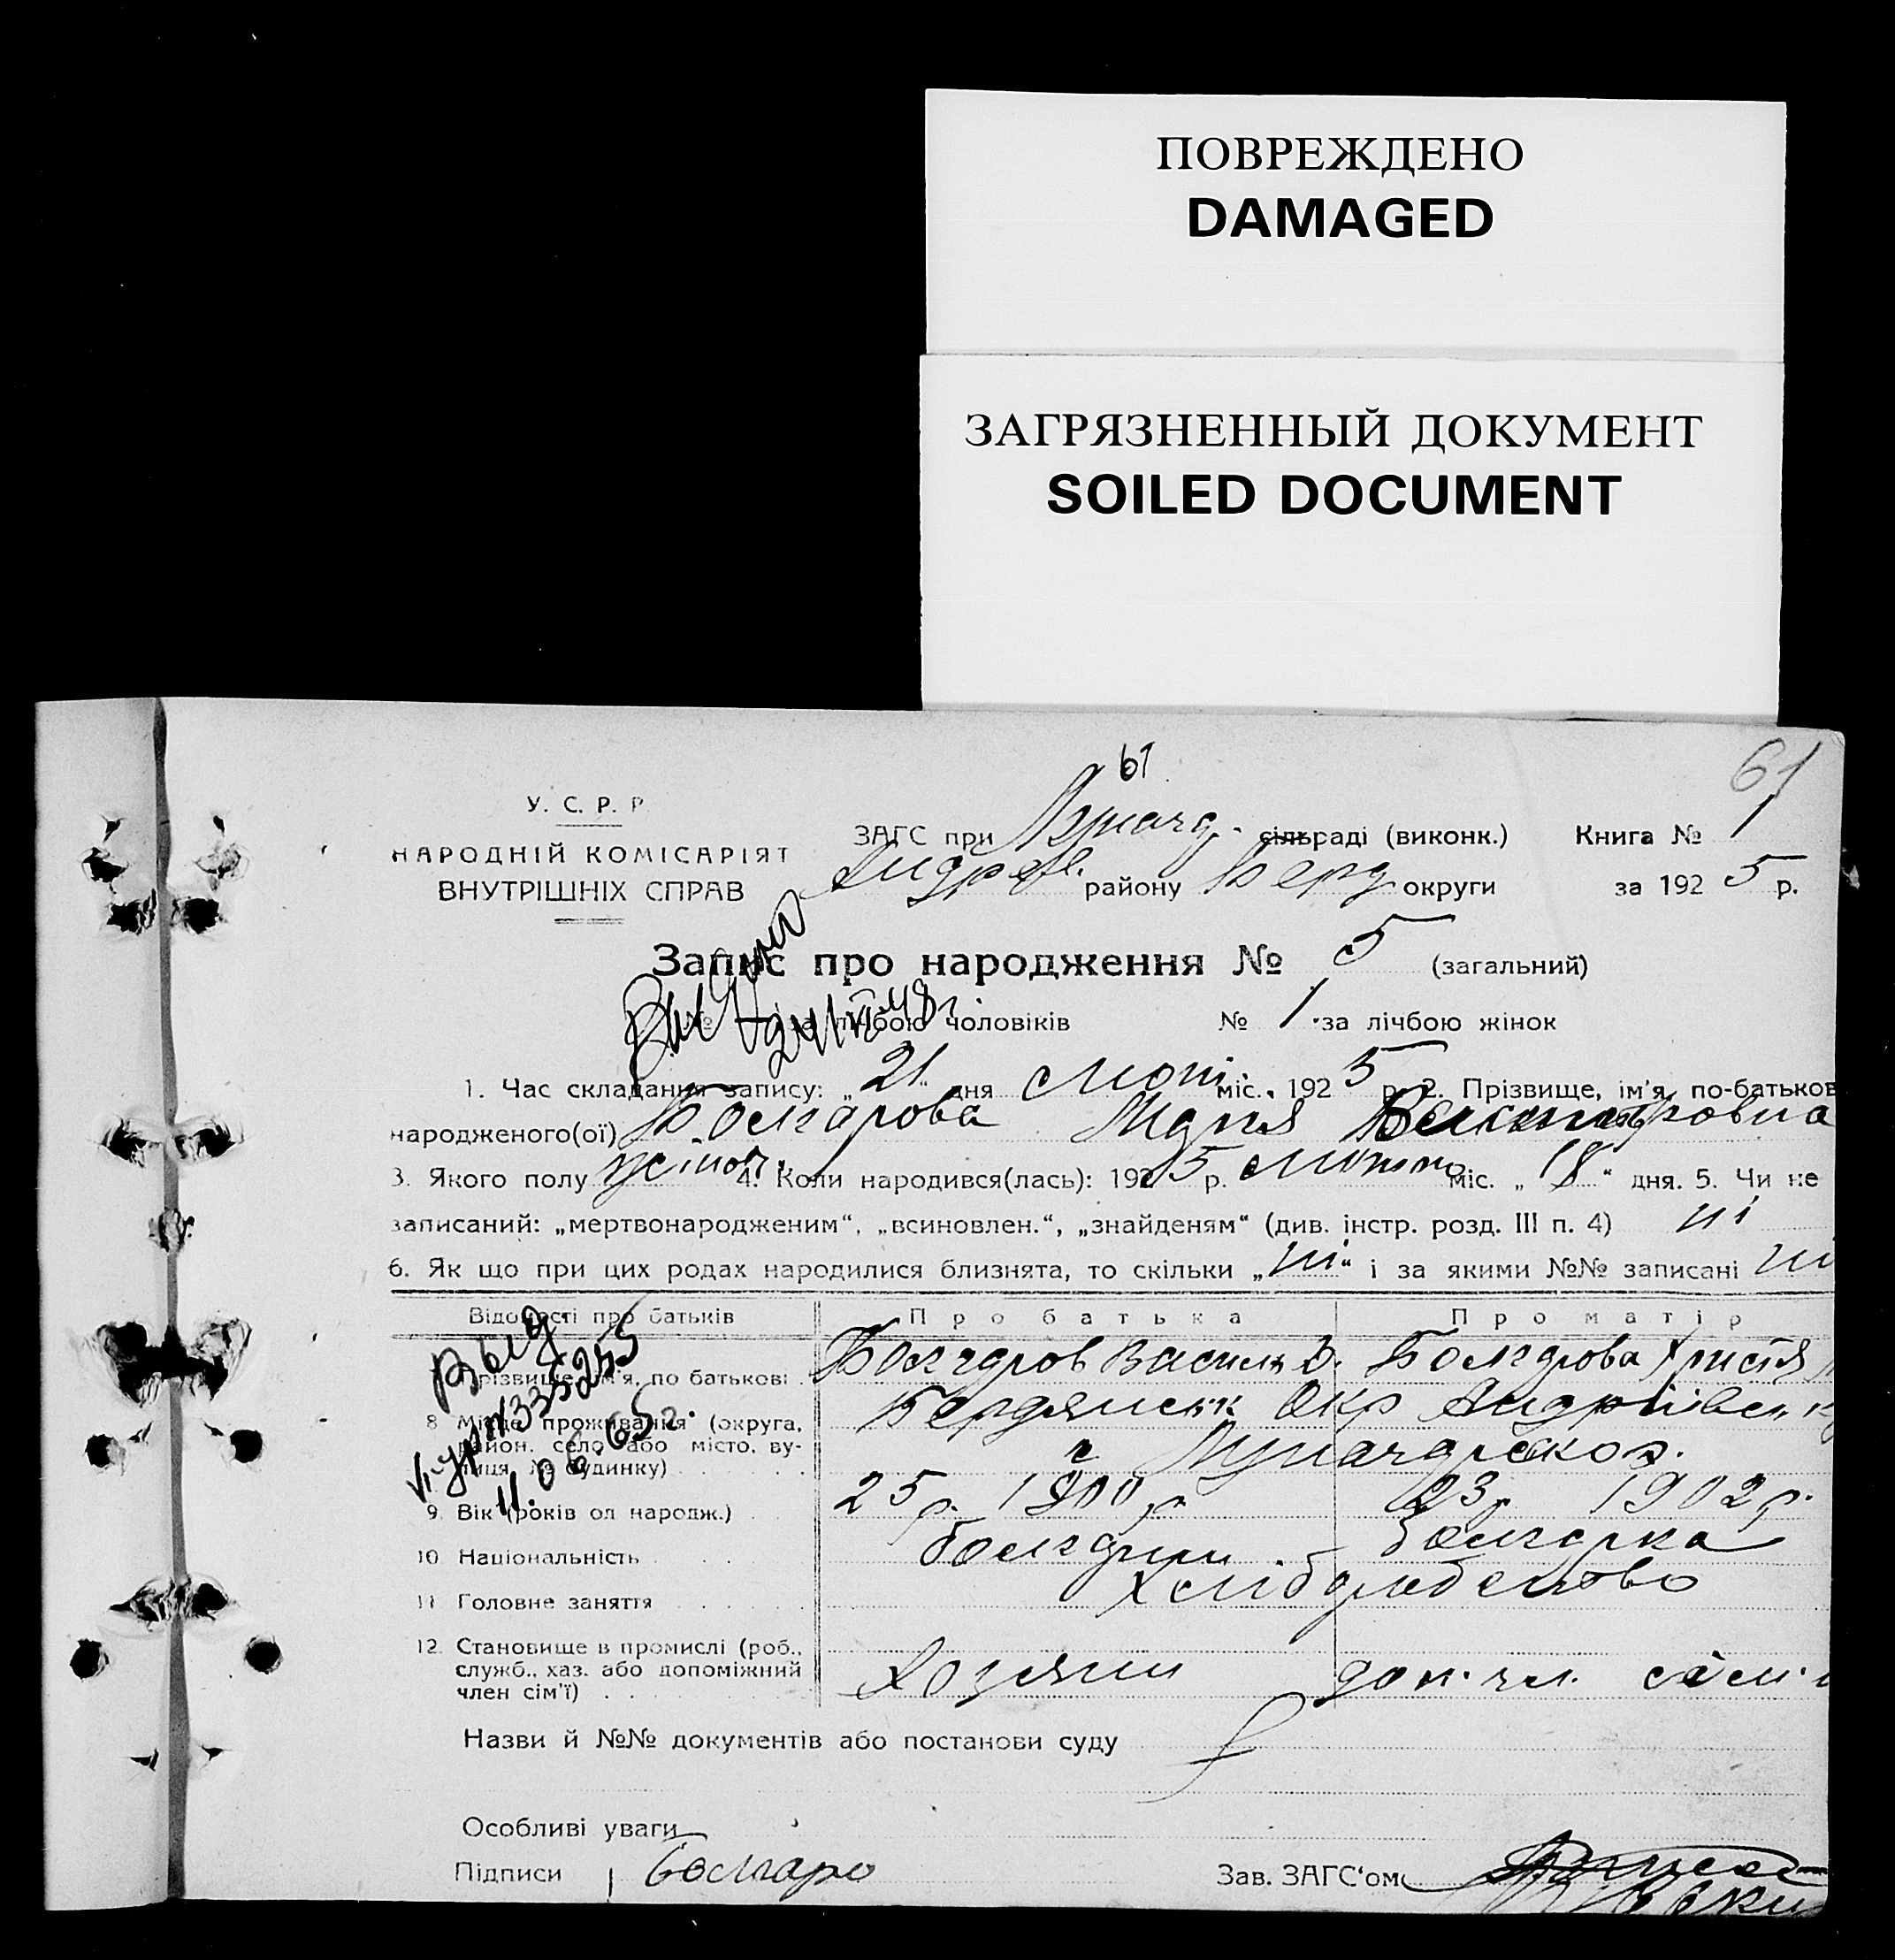 ПОВРЕЖДЕНО
DAMAGED
ЗАГРЯЗНЕННЫЙ ДОКУМЕНТ
SOILED DOCUMENT
61
61
У. С. Р. Р
НАРОДНІЙ КОМІСАРІЯТ
ВНУТРІШНІХ СПРАВ
ЗАГС при сільраді (виконк.) Книга № 1
району Берд округи за 1925 р.
Запис про народження № 5 (загальний)
№ за лічбою чоловіків № 1 за лічбою жінок
1. Час складання запису: „21“ дня міс. 1925 р. 2. Прізвище, ім'я, по-батьков
народженого(ої) Болгарова Марія
3. Якого полу 4. Коли народився(лась): 1925 р. міс. „18“ дня. 5. Чи не
записаний: „мертвонародженим“, „всиновлен.“, „знайденям“ (див. інстр. розд. III п. 4) ні
6. Як що при цих родах народилися близнята, то скільки „ні“ і за якими №№ записані ні
Відомості про батьків Про батька Про матір
Прізвище, ім'я, по батькові Болгаров Василь Болгарова Христя
8 Місце проживання (округа, Бердянськ Окр
район, село або місто, ву-
лиця, № будинку)
9. Вік (років од народж.) 25 р. 1900 р 23 р 1902 р.
10 Національність болгарин болгарка
11 Головне заняття Хліборобство
12. Становище в промислі (роб.,
служб., хаз. або допоміжний Хозяин доп. чл. сем.
член сім'ї)
Назви й №№ документів або постанови суду
Особливі уваги
Підписи Болгаро Зав. ЗАГС'ом
Выд.
335255
11.06.65г.